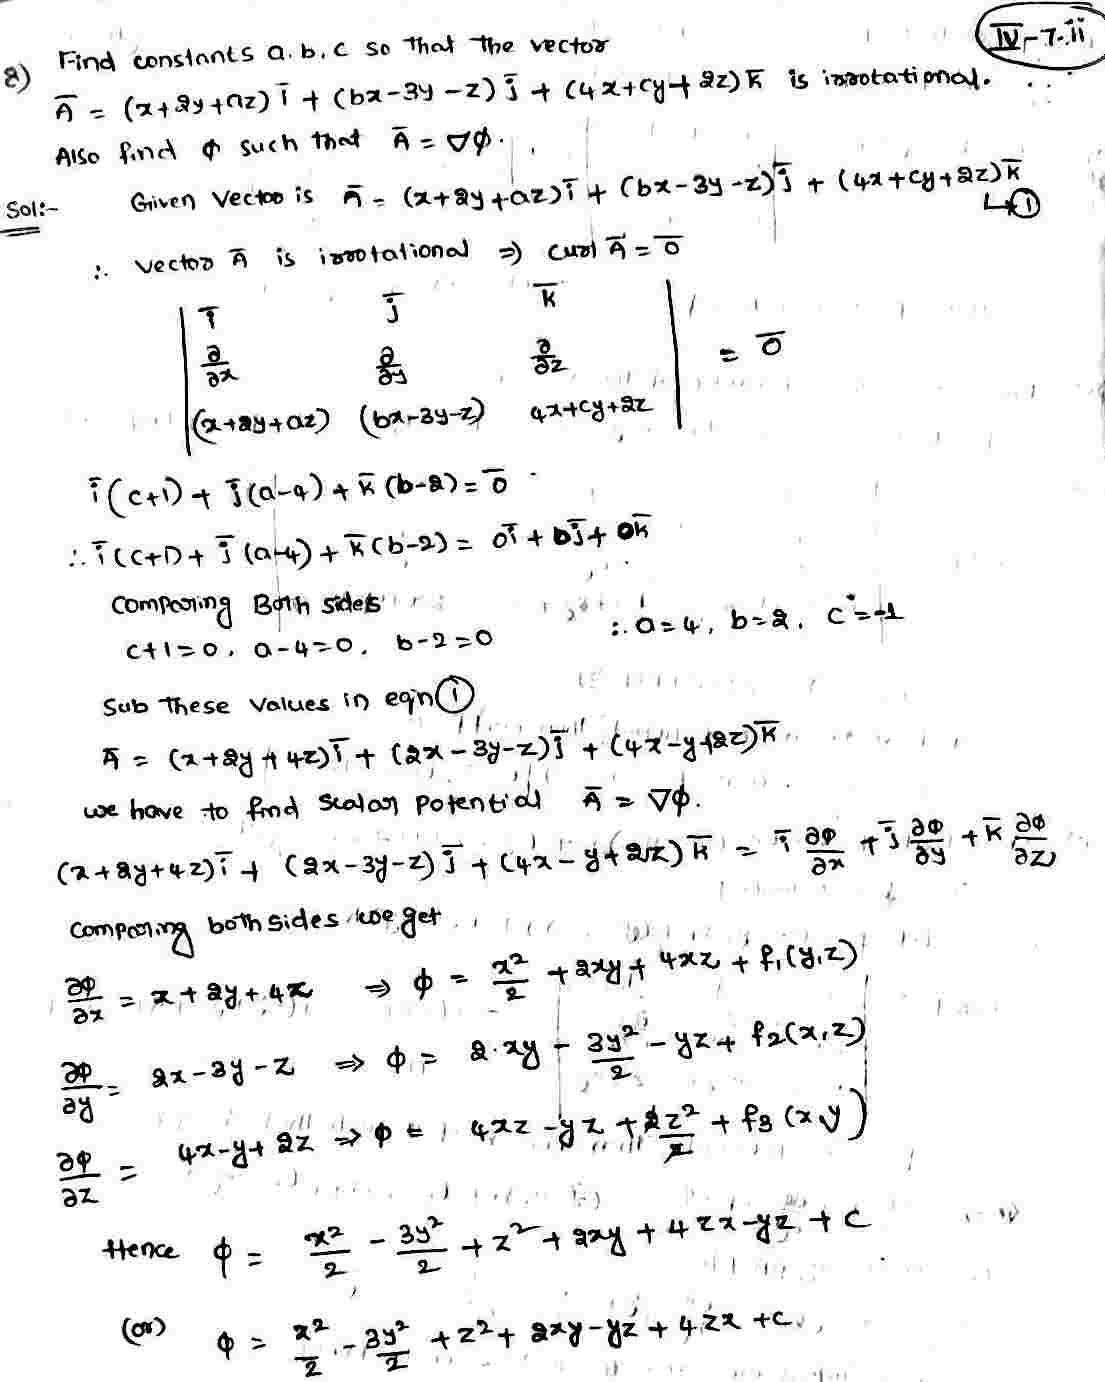 IV-7-ii
8) Find constants a, b, c so that the vector
Ā = (x+2y+az) ī + (bx-3y-z) j̄ + (4x+cy+2z) k̄ is irrotational.
Also find φ such that Ā = ∇φ.
Sol:- Given Vector is Ā = (x+2y+az) ī + (bx-3y-z) j̄ + (4x+cy+2z) k̄
↳①
∴ vector Ā is irrotational ⇒ curl Ā = 0̄
| ī j̄ k̄ |
| ∂/∂x ∂/∂y ∂/∂z | = 0̄
| (x+2y+az) (bx-3y-z) 4x+cy+2z |
ī (c+1) + j̄ (a-4) + k̄ (b-2) = 0̄
∴ ī (c+1) + j̄ (a-4) + k̄ (b-2) = 0ī + 0j̄ + 0k̄
Comparing Both sides
c+1=0, a-4=0, b-2=0 ∴ a=4, b=2, c=-1
Sub These values in eqn ①
Ā = (x+2y+4z) ī + (2x-3y-z) j̄ + (4x-y+2z) k̄
we have to find scalar potential Ā = ∇φ.
(x+2y+4z) ī + (2x-3y-z) j̄ + (4x-y+2z) k̄ = ī ∂φ/∂x + j̄ ∂φ/∂y + k̄ ∂φ/∂z
Comparing both sides we get
∂φ/∂x = x+2y+4z ⇒ φ = x²/2 + 2xy + 4xz + f₁(y,z)
∂φ/∂y = 2x-3y-z ⇒ φ = 2·xy - 3y²/2 - yz + f₂(x,z)
∂φ/∂z = 4x-y+2z ⇒ φ = 4xz - yz + 2z²/2 + f₃(x,y)
Hence φ = x²/2 - 3y²/2 + z² + 2xy + 4zx - yz + c
(or) φ = x²/2 - 3y²/2 + z² + 2xy - yz + 4zx + c